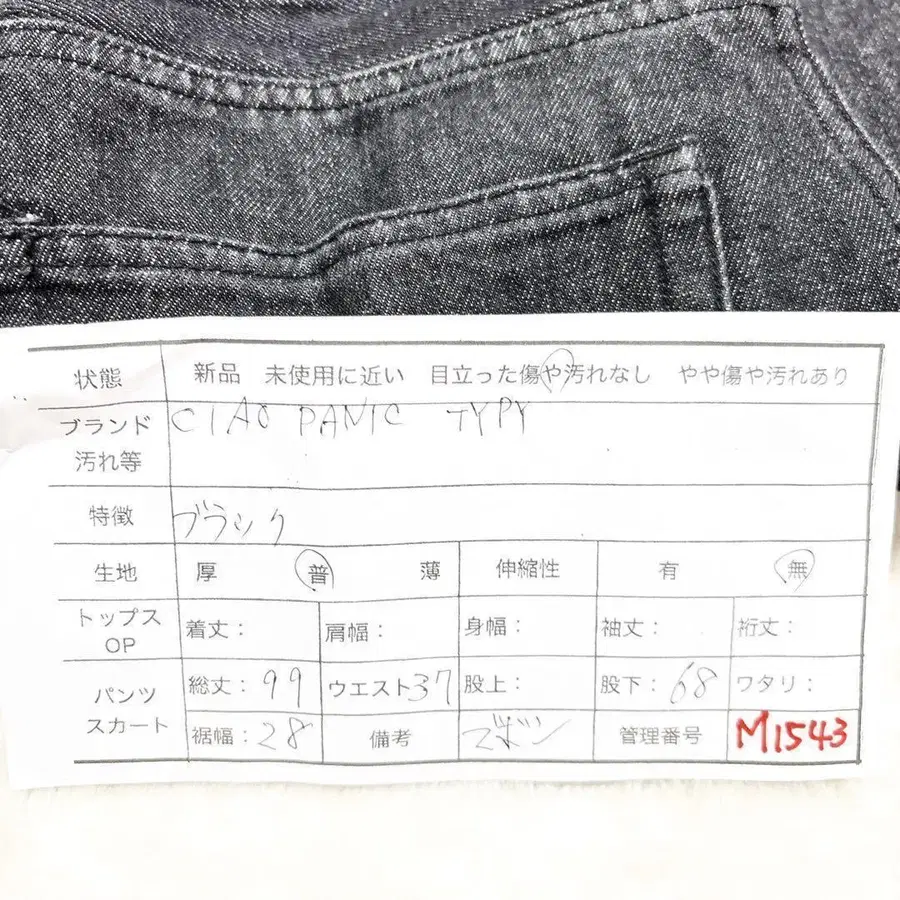 状態 新品 未使用に近い 目立った傷や汚れなし やや傷や汚れあり
ブランド CIAO PANIC TYPY
汚れ等
特徴 ブラック
生地 厚 普 薄 伸縮性 有 無
トップス OP 着丈： 肩幅： 身幅： 袖丈： 裄丈：
パンツ スカート 総丈：99 ウエスト37 股上： 股下：68 ワタリ：
裾幅：28 備考 管理番号 M1543